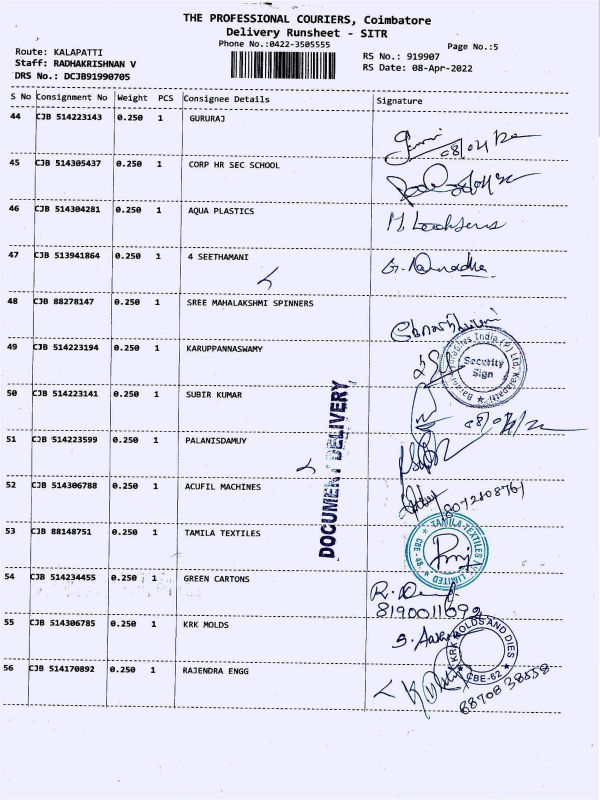 THE PROFESSIONAL COURIERS, Coimbatore
Delivery Runsheet - SITR
Phone No.:0422-3505555
Page No.:5
Route: KALAPATTI
Staff: RADHAKRISHNAN V
DRS No.: DCJB91990705
RS No.: 919907
RS Date: 08-Apr-2022
S No Consignment No Weight PCS Consignee Details Signature
44 CJB 514223143 0.250 1 GURURAJ
45 CJB 514305437 0.250 1 CORP HR SEC SCHOOL
46 CJB 514304281 0.250 1 AQUA PLASTICS
47 CJB 513941864 0.250 1 4 SEETHAMANI
48 CJB 88278147 0.250 1 SREE MAHALAKSHMI SPINNERS
49 CJB 514223194 0.250 1 KARUPPANNASWAMY
Security
Sign
50 CJB 514223141 0.250 1 SUBIR KUMAR
51 CJB 514223599 0.250 1 PALANISDAMUY
DOCUMENT DELIVERY
52 CJB 514306788 0.250 1 ACUFIL MACHINES
53 CJB 88148751 0.250 1 TAMILA TEXTILES
TAMILA TEXTILES
LIMITED
54 CJB 514234455 0.250 1 GREEN CARTONS
55 CJB 514306785 0.250 1 KRK MOLDS
KRK MOLDS AND DIES
CBE-62
56 CJB 514170892 0.250 1 RAJENDRA ENGG
88708 38558